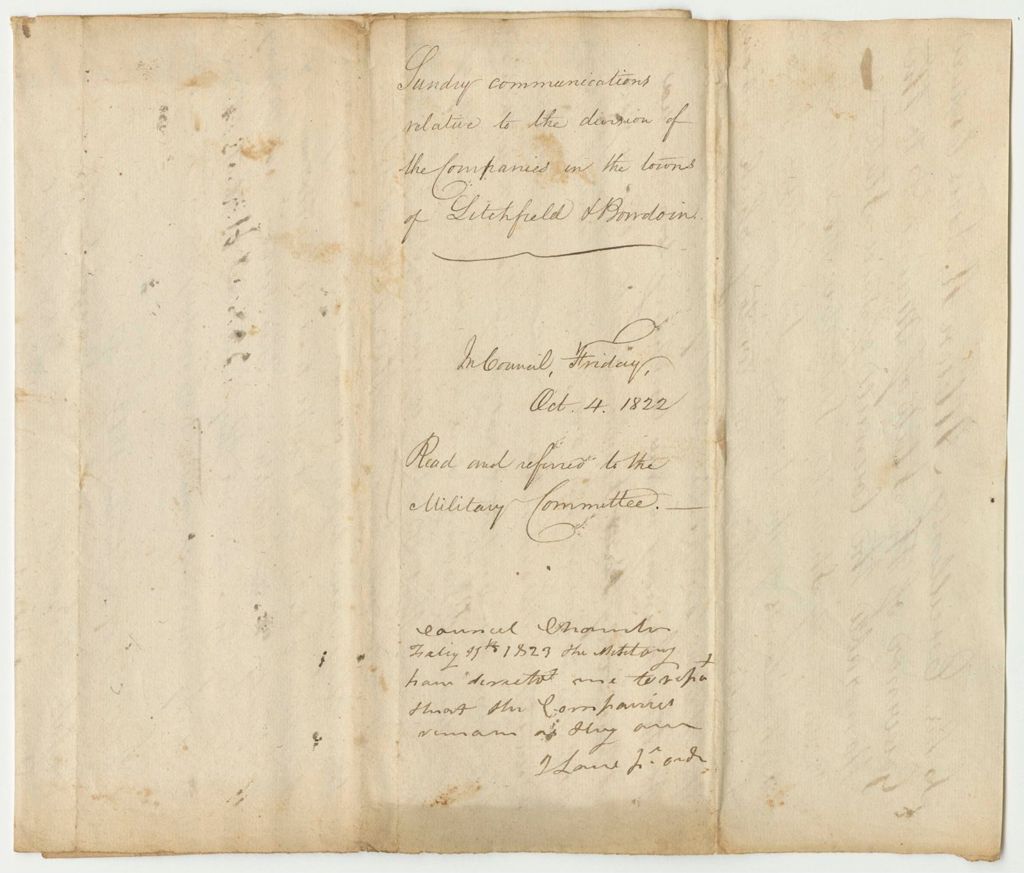 Sundry communications
relative to the division of
the Companies in the towns
of Litchfield & Bowdoin.
In Council, Friday,
Oct. 4. 1822
Read and referred to the
Military Committee. —
Council Chamber
1823 the Military
have me to
that the Companies
remain as they are